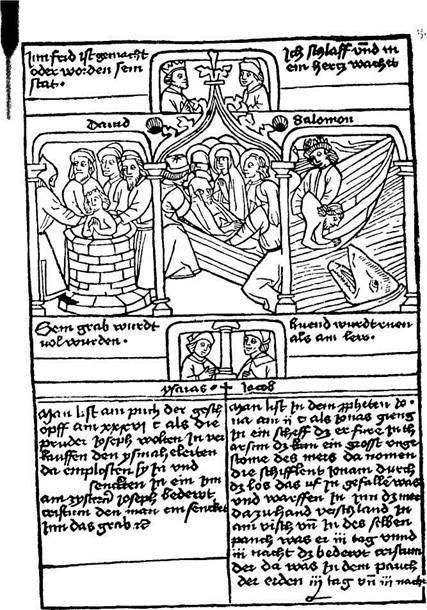 Im frid ist gemacht
oder worden sein
stat.
Ich schlaff und in
ein hercz wachet
David
Salomon
Sein grab wurdt
vol wurden.
als am lew.
ysaias. Jacob
Man list am puch der gesch
öpff am xxxvi c als die
pruder Joseph wolten in ver
kauffen den ysmaheleiten
da emplosten sy in und
sencken in ein
am Joseph bedewt
cristum den man ein sencket
inn das grab
Man list in dem ppheten Jo
na am ij c als Jonas gieng
in ein scheff dz er fure in th
arsim dz kam ein gross unge
stome des mers da nomen
die schifflent ionam durch
dz los das uf in gefalle was
und warffen in inn dz mer
da zuhand verschland in
am visch un in des selben
pauch was er iij tag unnd
iij nacht dz bedewt cristum
der da was in dem pauch
der erden iij tag un iij nacht